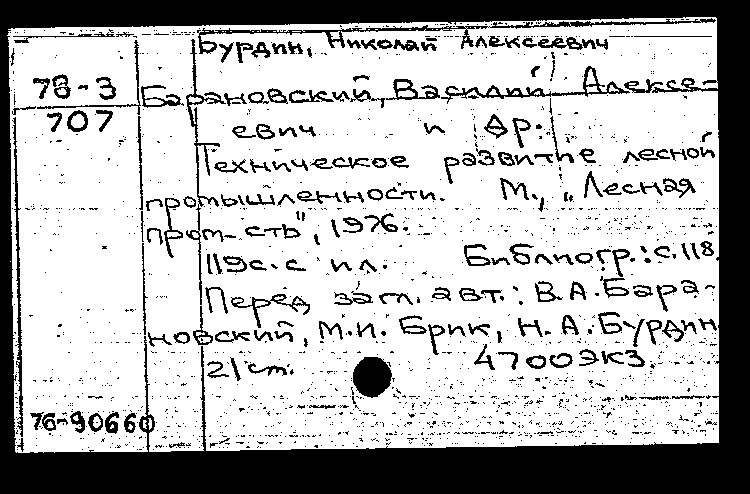 Бурдин, Николай Алексеевич
78-3
707
Барановский, Василий Алексе-
евич и др.
Техническое развитие лесной
промышленности. М., „Лесная
пром-сть", 1976.
119с. с ил. Библиогр.: с.118.
Перед загл. авт.: В.А.Бара-
новский, М.И. Брик, Н.А.Бурдин
21 см. 4700экз.
76-90660